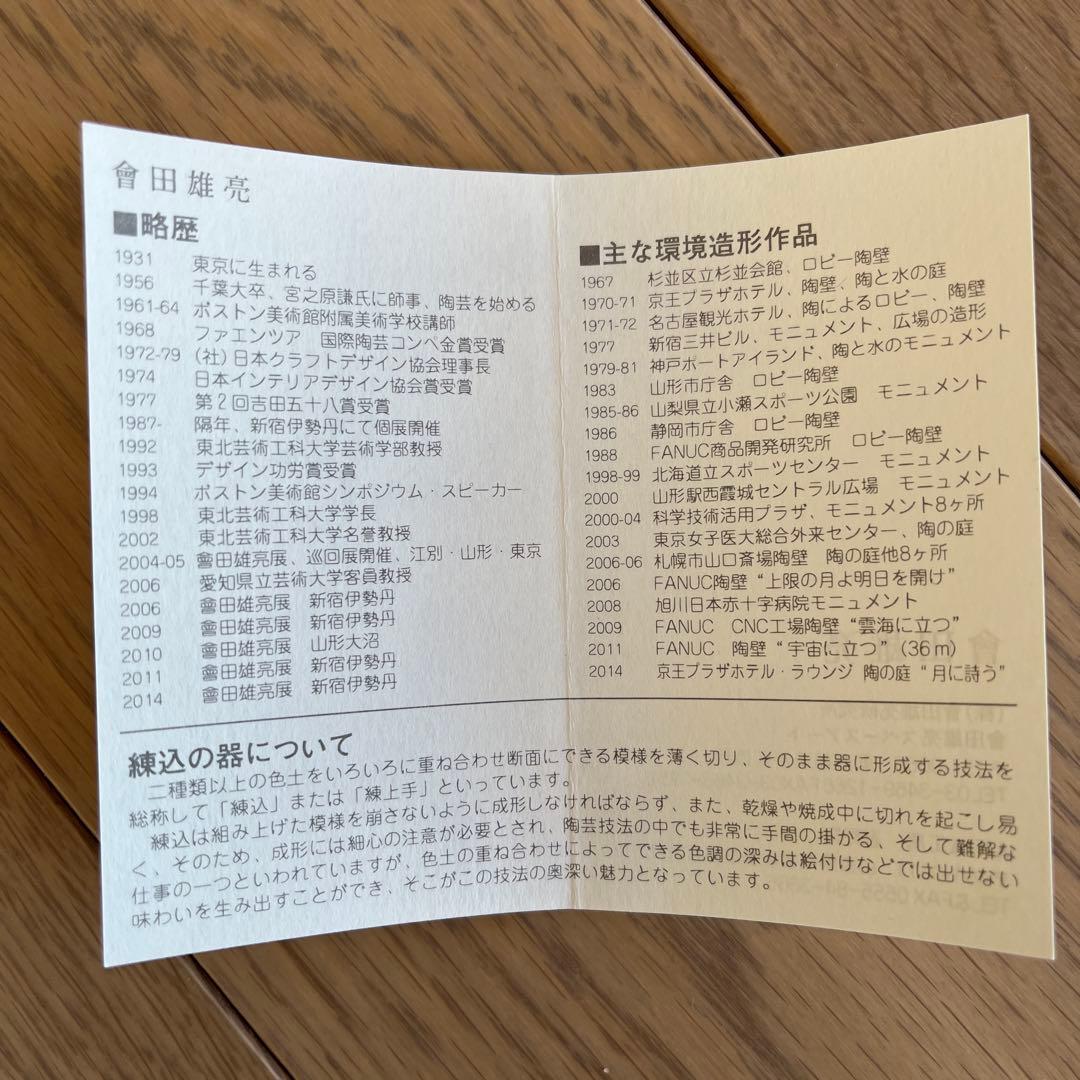 會田雄亮
■略歴
1931 東京に生まれる
1956 千葉大卒、宮之原謙氏に師事、陶芸を始める
1961-64 ボストン美術館附属美術学校講師
1968 ファエンツア 国際陶芸コンペ金賞受賞
1972-79 (社)日本クラフトデザイン協会理事長
1974 日本インテリアデザイン協会賞受賞
1977 第2回吉田五十八賞受賞
1987- 隔年、新宿伊勢丹にて個展開催
1992 東北芸術工科大学芸術学部教授
1993 デザイン功労賞受賞
1994 ボストン美術館シンポジウム・スピーカー
1998 東北芸術工科大学学長
2002 東北芸術工科大学名誉教授
2004-05 會田雄亮展、巡回展開催、江別・山形・東京
2006 愛知県立芸術大学客員教授
2006 會田雄亮展 新宿伊勢丹
2009 會田雄亮展 新宿伊勢丹
2010 會田雄亮展 山形大沼
2011 會田雄亮展 新宿伊勢丹
2014 會田雄亮展 新宿伊勢丹
■主な環境造形作品
1967 杉並区立杉並会館、ロビー陶壁
1970-71 京王プラザホテル、陶壁、陶と水の庭
1971-72 名古屋観光ホテル、陶によるロビー、陶壁
1977 新宿三井ビル、モニュメント、広場の造形
1979-81 神戸ポートアイランド、陶と水のモニュメント
1983 山形市庁舎 ロビー陶壁
1985-86 山梨県立小瀬スポーツ公園 モニュメント
1986 静岡市庁舎 ロビー陶壁
1988 FANUC商品開発研究所 ロビー陶壁
1998-99 北海道立スポーツセンター モニュメント
2000 山形駅西霞城セントラル広場 モニュメント
2000-04 科学技術活用プラザ、モニュメント8ヶ所
2003 東京女子医大総合外来センター、陶の庭
2006-06 札幌市山口斎場陶壁 陶の庭他8ヶ所
2006 FANUC陶壁“上限の月よ明日を開け”
2008 旭川日本赤十字病院モニュメント
2009 FANUC CNC工場陶壁“雲海に立つ”
2011 FANUC 陶壁“宇宙に立つ”(36m)
2014 京王プラザホテル・ラウンジ 陶の庭“月に詩う”
練込の器について
二種類以上の色土をいろいろに重ね合わせ断面にできる模様を薄く切り、そのまま器に形成する技法を
総称して「練込」または「練上手」といっています。
練込は組み上げた模様を崩さないように成形しなければならず、また、乾燥や焼成中に切れを起こし易
く、そのため、成形には細心の注意が必要とされ、陶芸技法の中でも非常に手間の掛かる、そして難解な
仕事の一つといわれていますが、色土の重ね合わせによってできる色調の深みは絵付けなどでは出せない
味わいを生み出すことができ、そこがこの技法の奥深い魅力となっています。